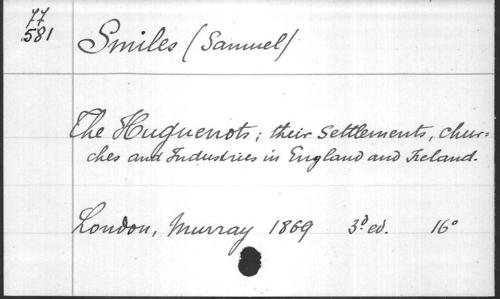 77
581
Smiles (Samuel)
The Huguenots; their Settlements, chur=
ches and Industries in England and Ireland.
London, Murray 1869 3d ed. 16°